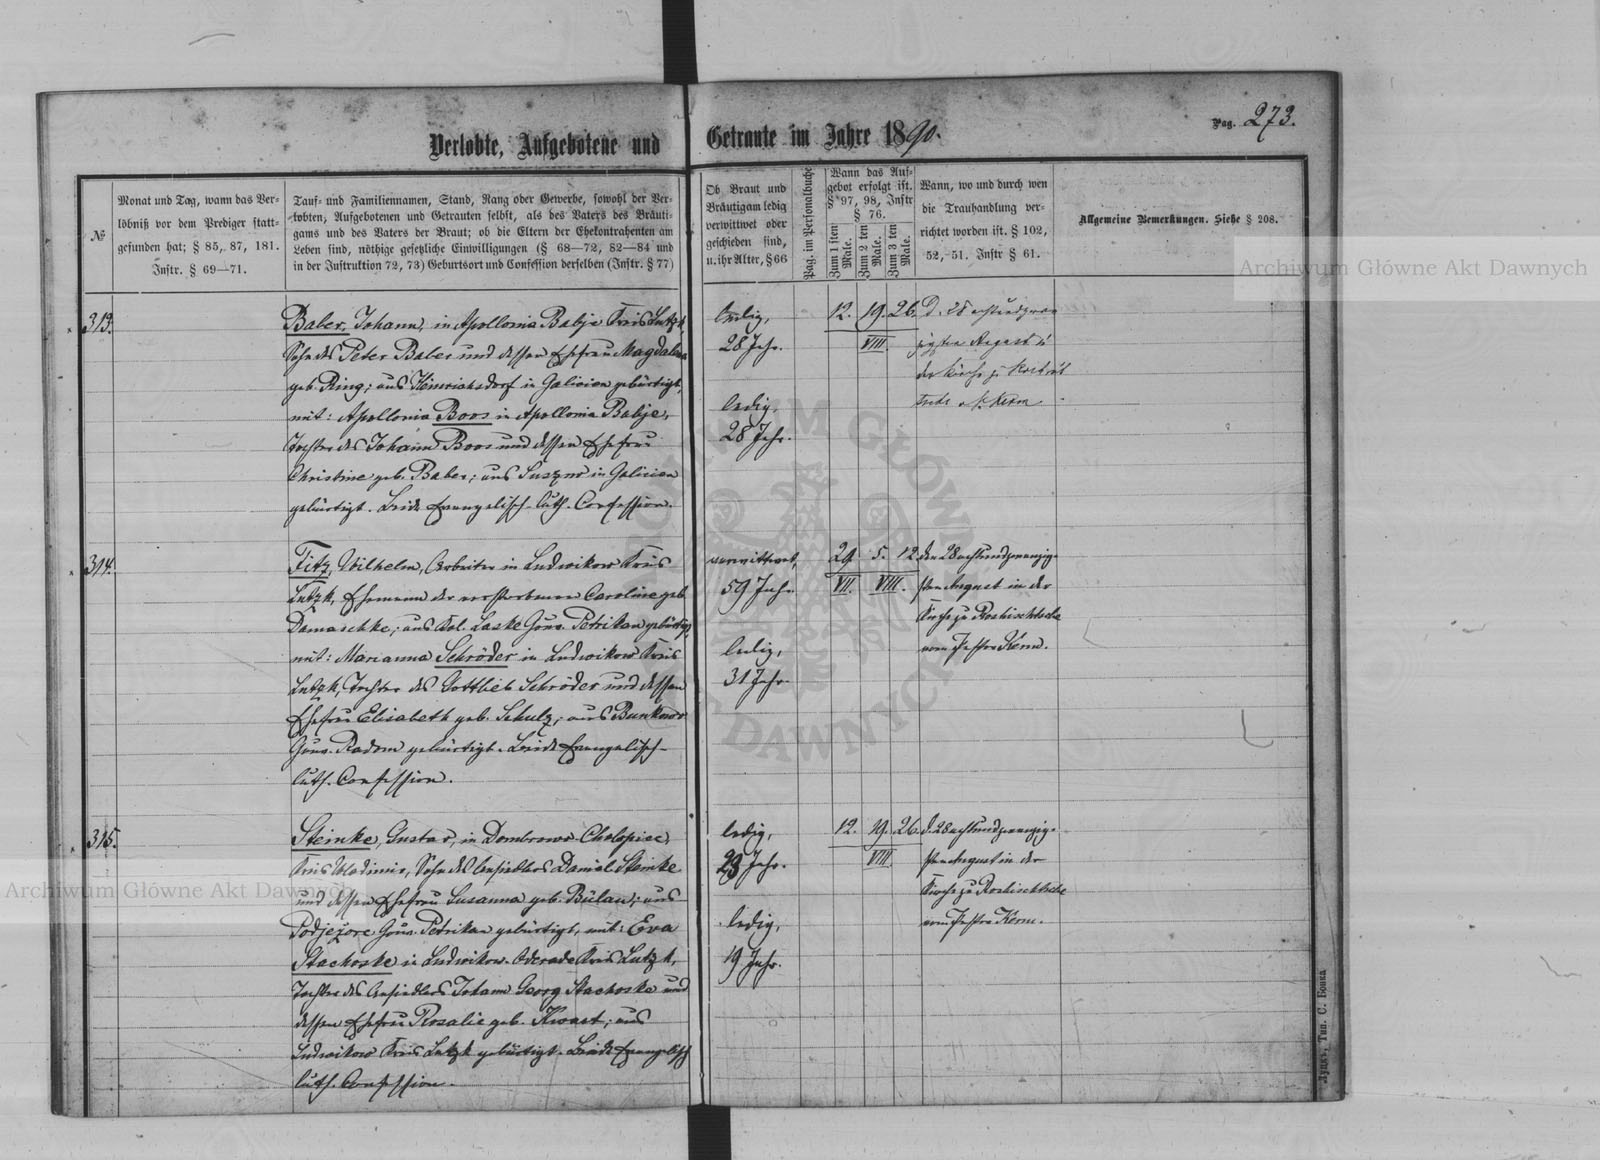 Pag. 273.
Verlobte, Aufgebotene und Getraute im Jahre 1890.
№
Monat und Tag, wann das Ver-
löbniß vor dem Prediger statt-
gefunden hat; § 85, 87, 181.
Instr. § 69—71.
Tauf- und Familiennamen, Stand, Rang oder Gewerbe, sowohl der Ver-
lobten, Aufgebotenen und Getrauten selbst, als des Vaters des Bräuti-
gams und des Vaters der Braut; ob die Eltern der Ehekontrahenten am
Leben sind, nöthige gesetzliche Einwilligungen (§ 68—72, 82—84 und
in der Instruktion 72, 73) Geburtsort und Confession derselben (Instr. § 77)
Ob Braut und
Bräutigam ledig
verwittwet oder
geschieden sind,
u. ihr Alter, § 66
Pag. im Personalbuche
Wann das Auf-
gebot erfolgt ist.
§ 97, 98, Instr
§ 76.
Zum 1 sten Male.
Zum 2 ten Male.
Zum 3 ten Male.
Wann, wo und durch wen
die Trauhandlung ver-
richtet worden ist. § 102,
52,-51. Instr § 61.
Allgemeine Bemerkungen. Siehe § 208.
313.
Baber, Johann, in Apollonia Babje Kreis Lutzk,
Sohn des Peter Baber und dessen Ehefrau Magdalena
geb. Ring; aus Heinrichsdorf in Galicien gebürtigt,
mit: Apollonia Boos in Apollonia Babje,
Tochter des Johann Boos und dessen Ehefrau
Christine geb. Baber; aus Suszno in Galicien
gebürtigt. Beide Evangelisch-luth. Confession.
ledig,
28 Jahr.
ledig,
28 Jahr.
12. 19. 26.
VIII.
D. 28 achtundzwan
zigsten August in
der Kirche zu
Kerm
314.
Fitz, Wilhelm, Arbeiter in Ludwikow Kreis
Lutzk, Ehemann der verstorbenen Caroline geb.
Damaschke; aus Kol. Laske Gouv. Petrikau gebürtigt,
mit: Marianna Schröder in Ludwikow Kreis
Lutzk, Tochter des Gottlieb Schröder und dessen
Ehefrau Elisabeth geb. Schulz; aus Bunkow
Gouv. Radom gebürtigt. Beide Evangelisch-
luth. Confession.
verwittwet,
59 Jahr.
ledig,
31 Jahr.
29. 5. 12.
VII. VIII.
den 28 achtundzwanzig-
sten August in der
Kirche zu Roshischtsche
vom Pastor Kerm.
315.
Steinke, Gustav, in Dombrowo-Cholopiec,
Kreis Wladimir, Sohn des Ansiedlers Daniel Steinke
und dessen Ehefrau Susanna geb. Bülau; aus
Podjezore Gouv. Petrikau gebürtigt, mit: Eva
Stachoske in Ludwikow-Oderade Kreis Lutzk,
Tochter des Ansiedlers Johann Georg Stachoske und
dessen Ehefrau Rosalie geb. Kwast; aus
Ludwikow Kreis Lutzk gebürtigt. Beide Evangelisch
luth. Confession.
ledig,
23 Jahr.
ledig,
19 Jahr.
12. 19. 26.
VIII
d. 28 achtundzwanzig-
sten August in der
Kirche zu Roshischtsche
vom Pastor Kerm.
Луцкъ, Тип. С. Бонка
Archiwum Główne Akt Dawnych
Archiwum Główne Akt Dawnych